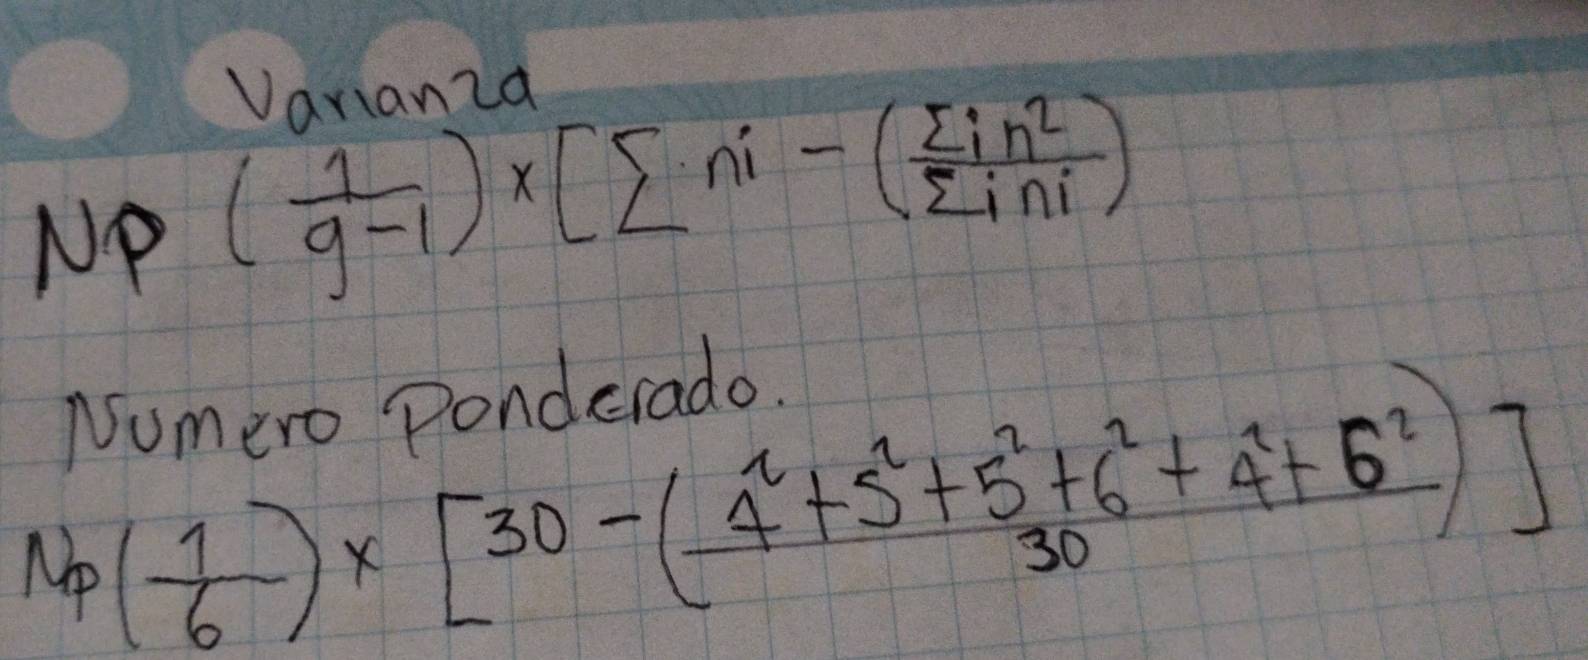 Varianza
Np (1/g-1) x [Σ ni - (Σi n²/Σi ni)
Numero Ponderado.
Np (1/6) x [30 - (4² + 5² + 5² + 6² + 4² + 6²/30)]